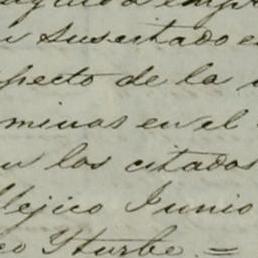 suscitado e
specto de la
minas en el
n los citados
Mejico Junio
co Yturbe =